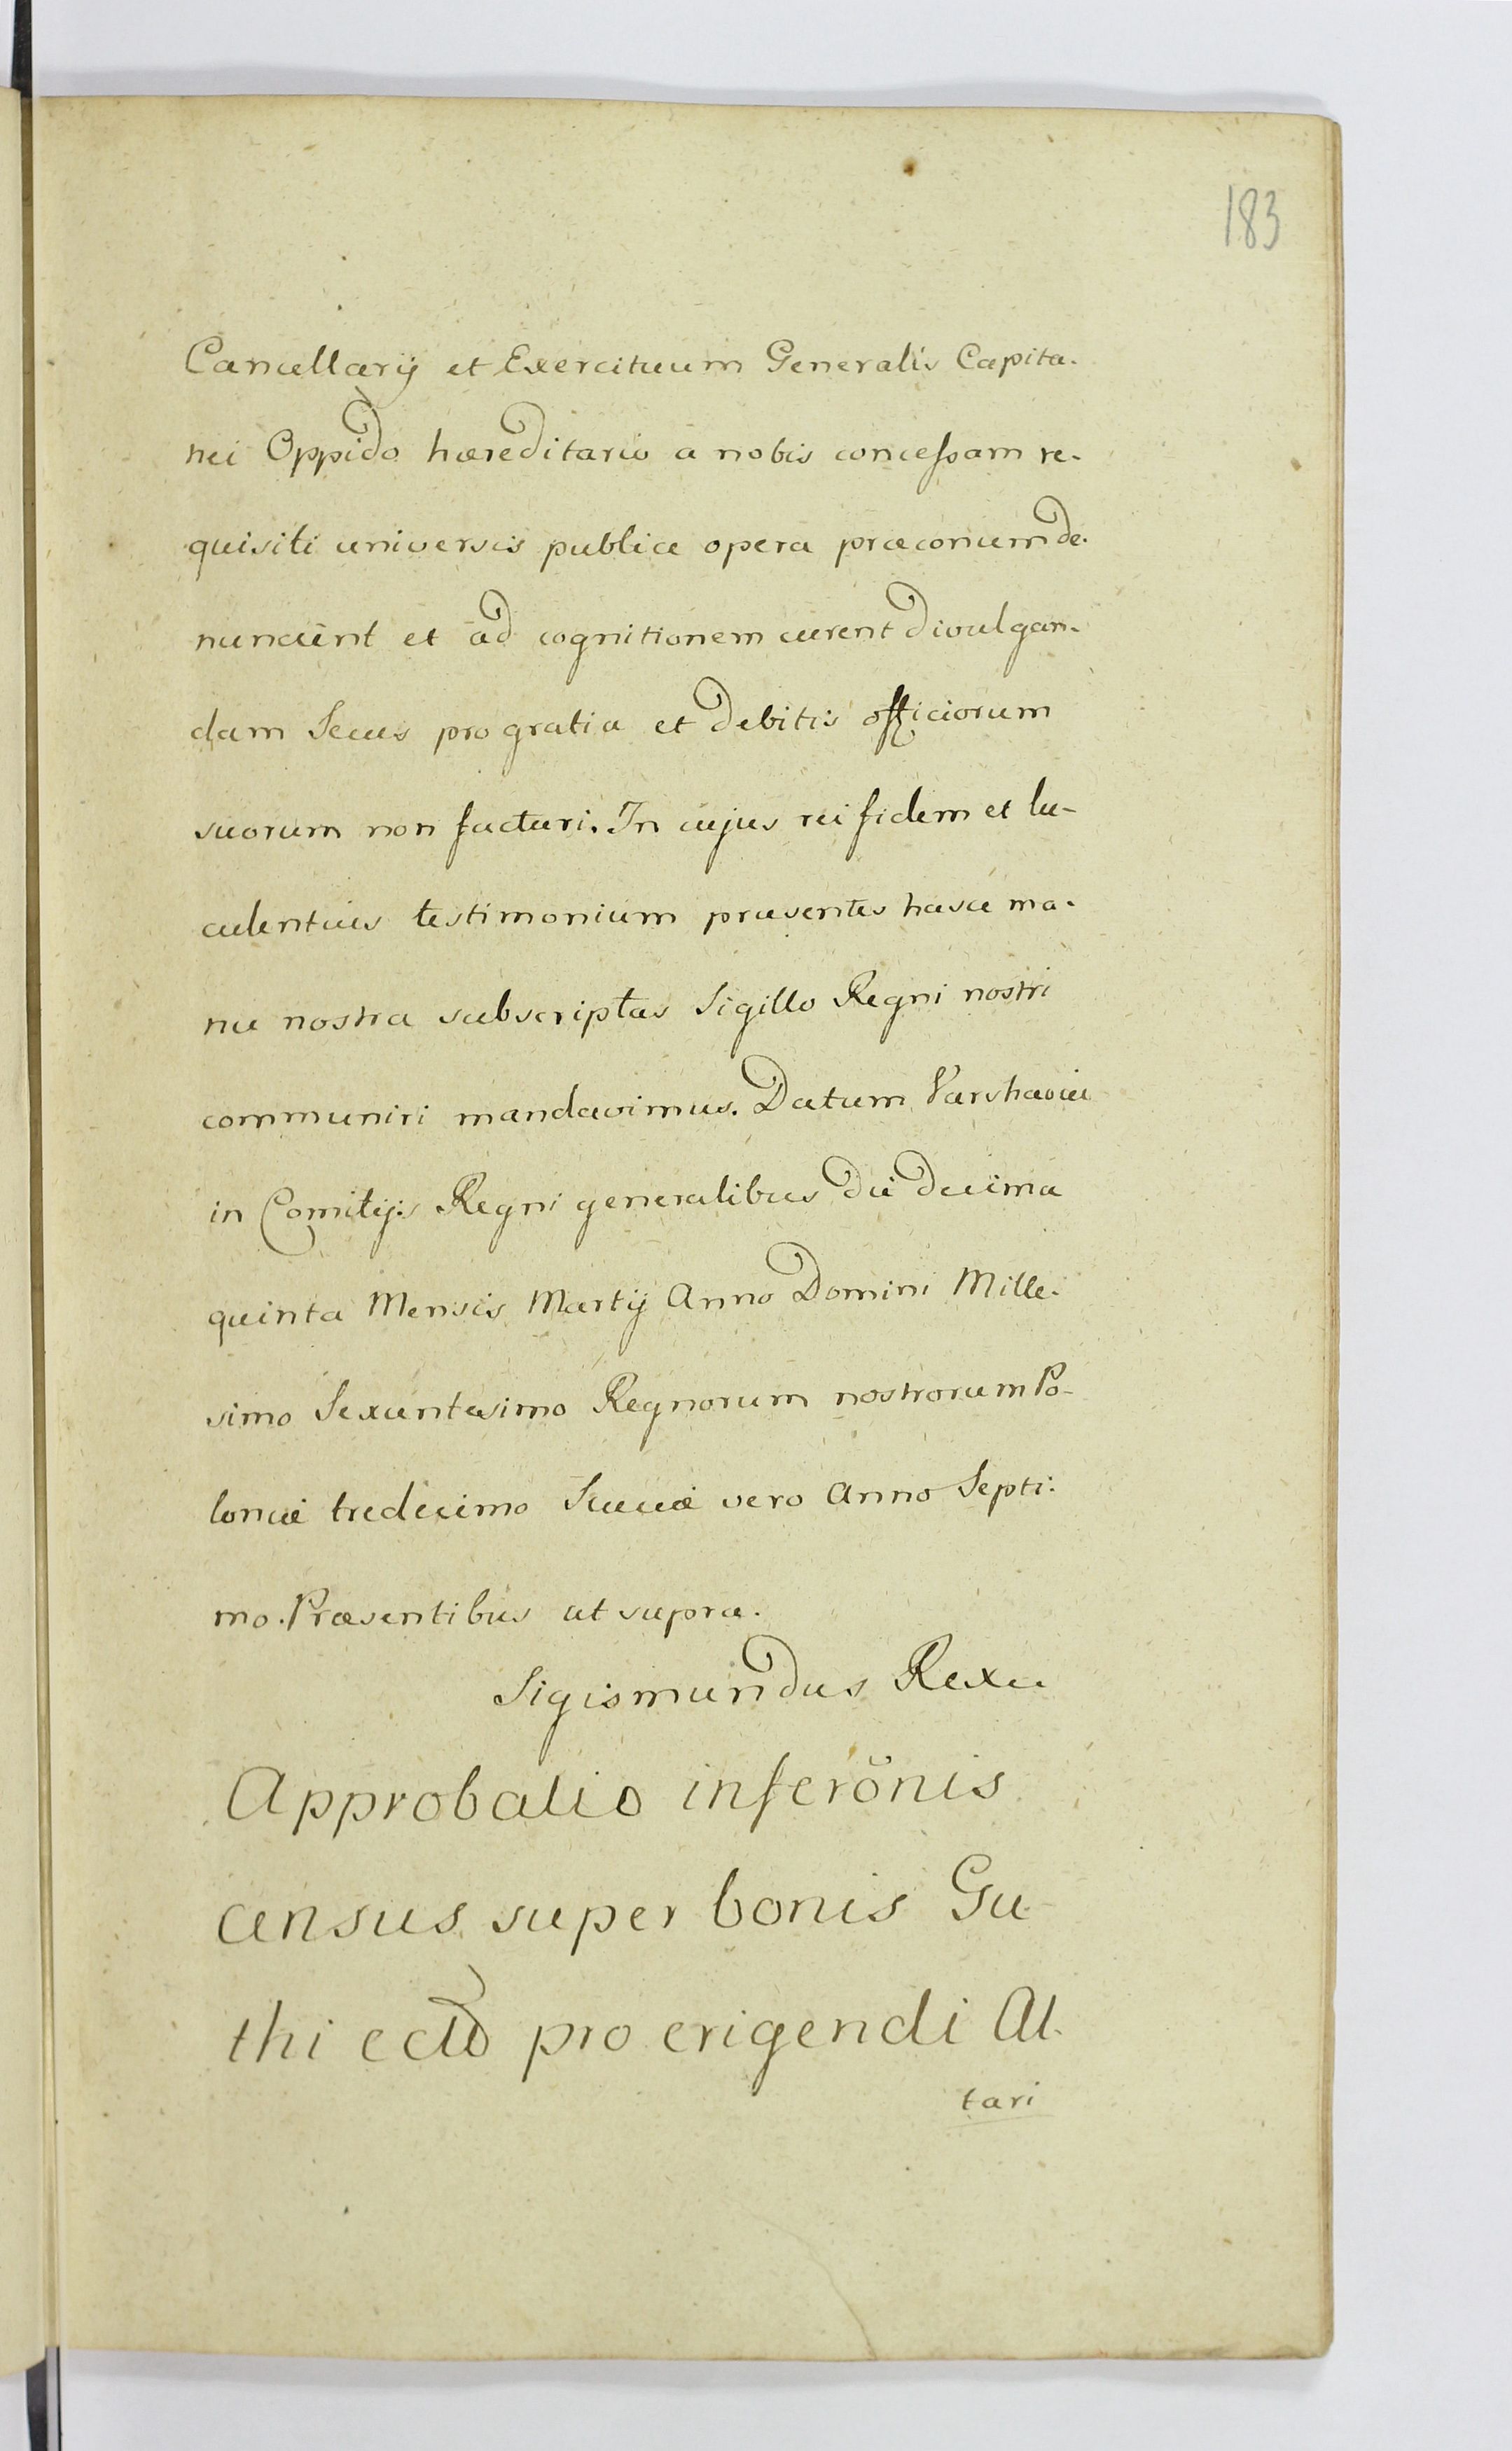 183
Cancellarij et Exercituum Generalis Capita-
nei Oppido hæreditario a nobis concessam re-
quisiti universis publica opera præconum de-
nuncient et ad cognitionem curent divulgan-
dam Secus pro gratia et debitis officiorum
suorum non facturi. In cujus rei fidem et lu-
culentius testimonium præsentes hasce ma-
nu nostra subscriptas Sigillo Regni nostri
communiri mandavimus. Datum Varshaviæ
in Comitijs Regni generalibus die decima
quinta Mensis Martij Anno Domini Mille-
simo Sexcentesimo Regnorum nostrorum Po-
loniæ tredecimo Sueciæ vero Anno Septi-
mo. Præsentibus ut supra.
Sigismundus Rex
Approbatio inscrõnis
census super bonis Gu-
thi ecld pro erigendi Al-
tari